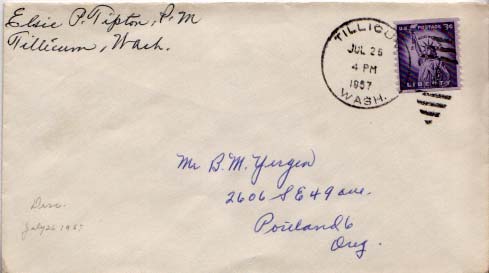 Elsie P. Tipton, P.M
Tillicum, Wash.
TILLICUM
JUL 26
4 PM
1957
WASH.
U.S. POSTAGE 3¢
LIBERTY
Mr B.M. Yergen
2606 S E 49 ave.
Portland 6
Oreg.
July 26 1957